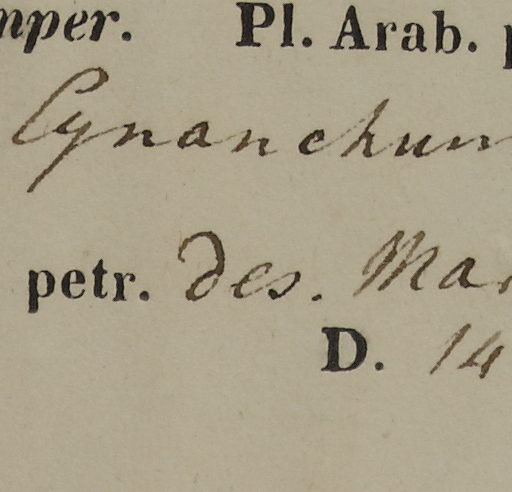 mper. Pl. Arab. p
Cynanchum
petr. des. Mar
D. 14